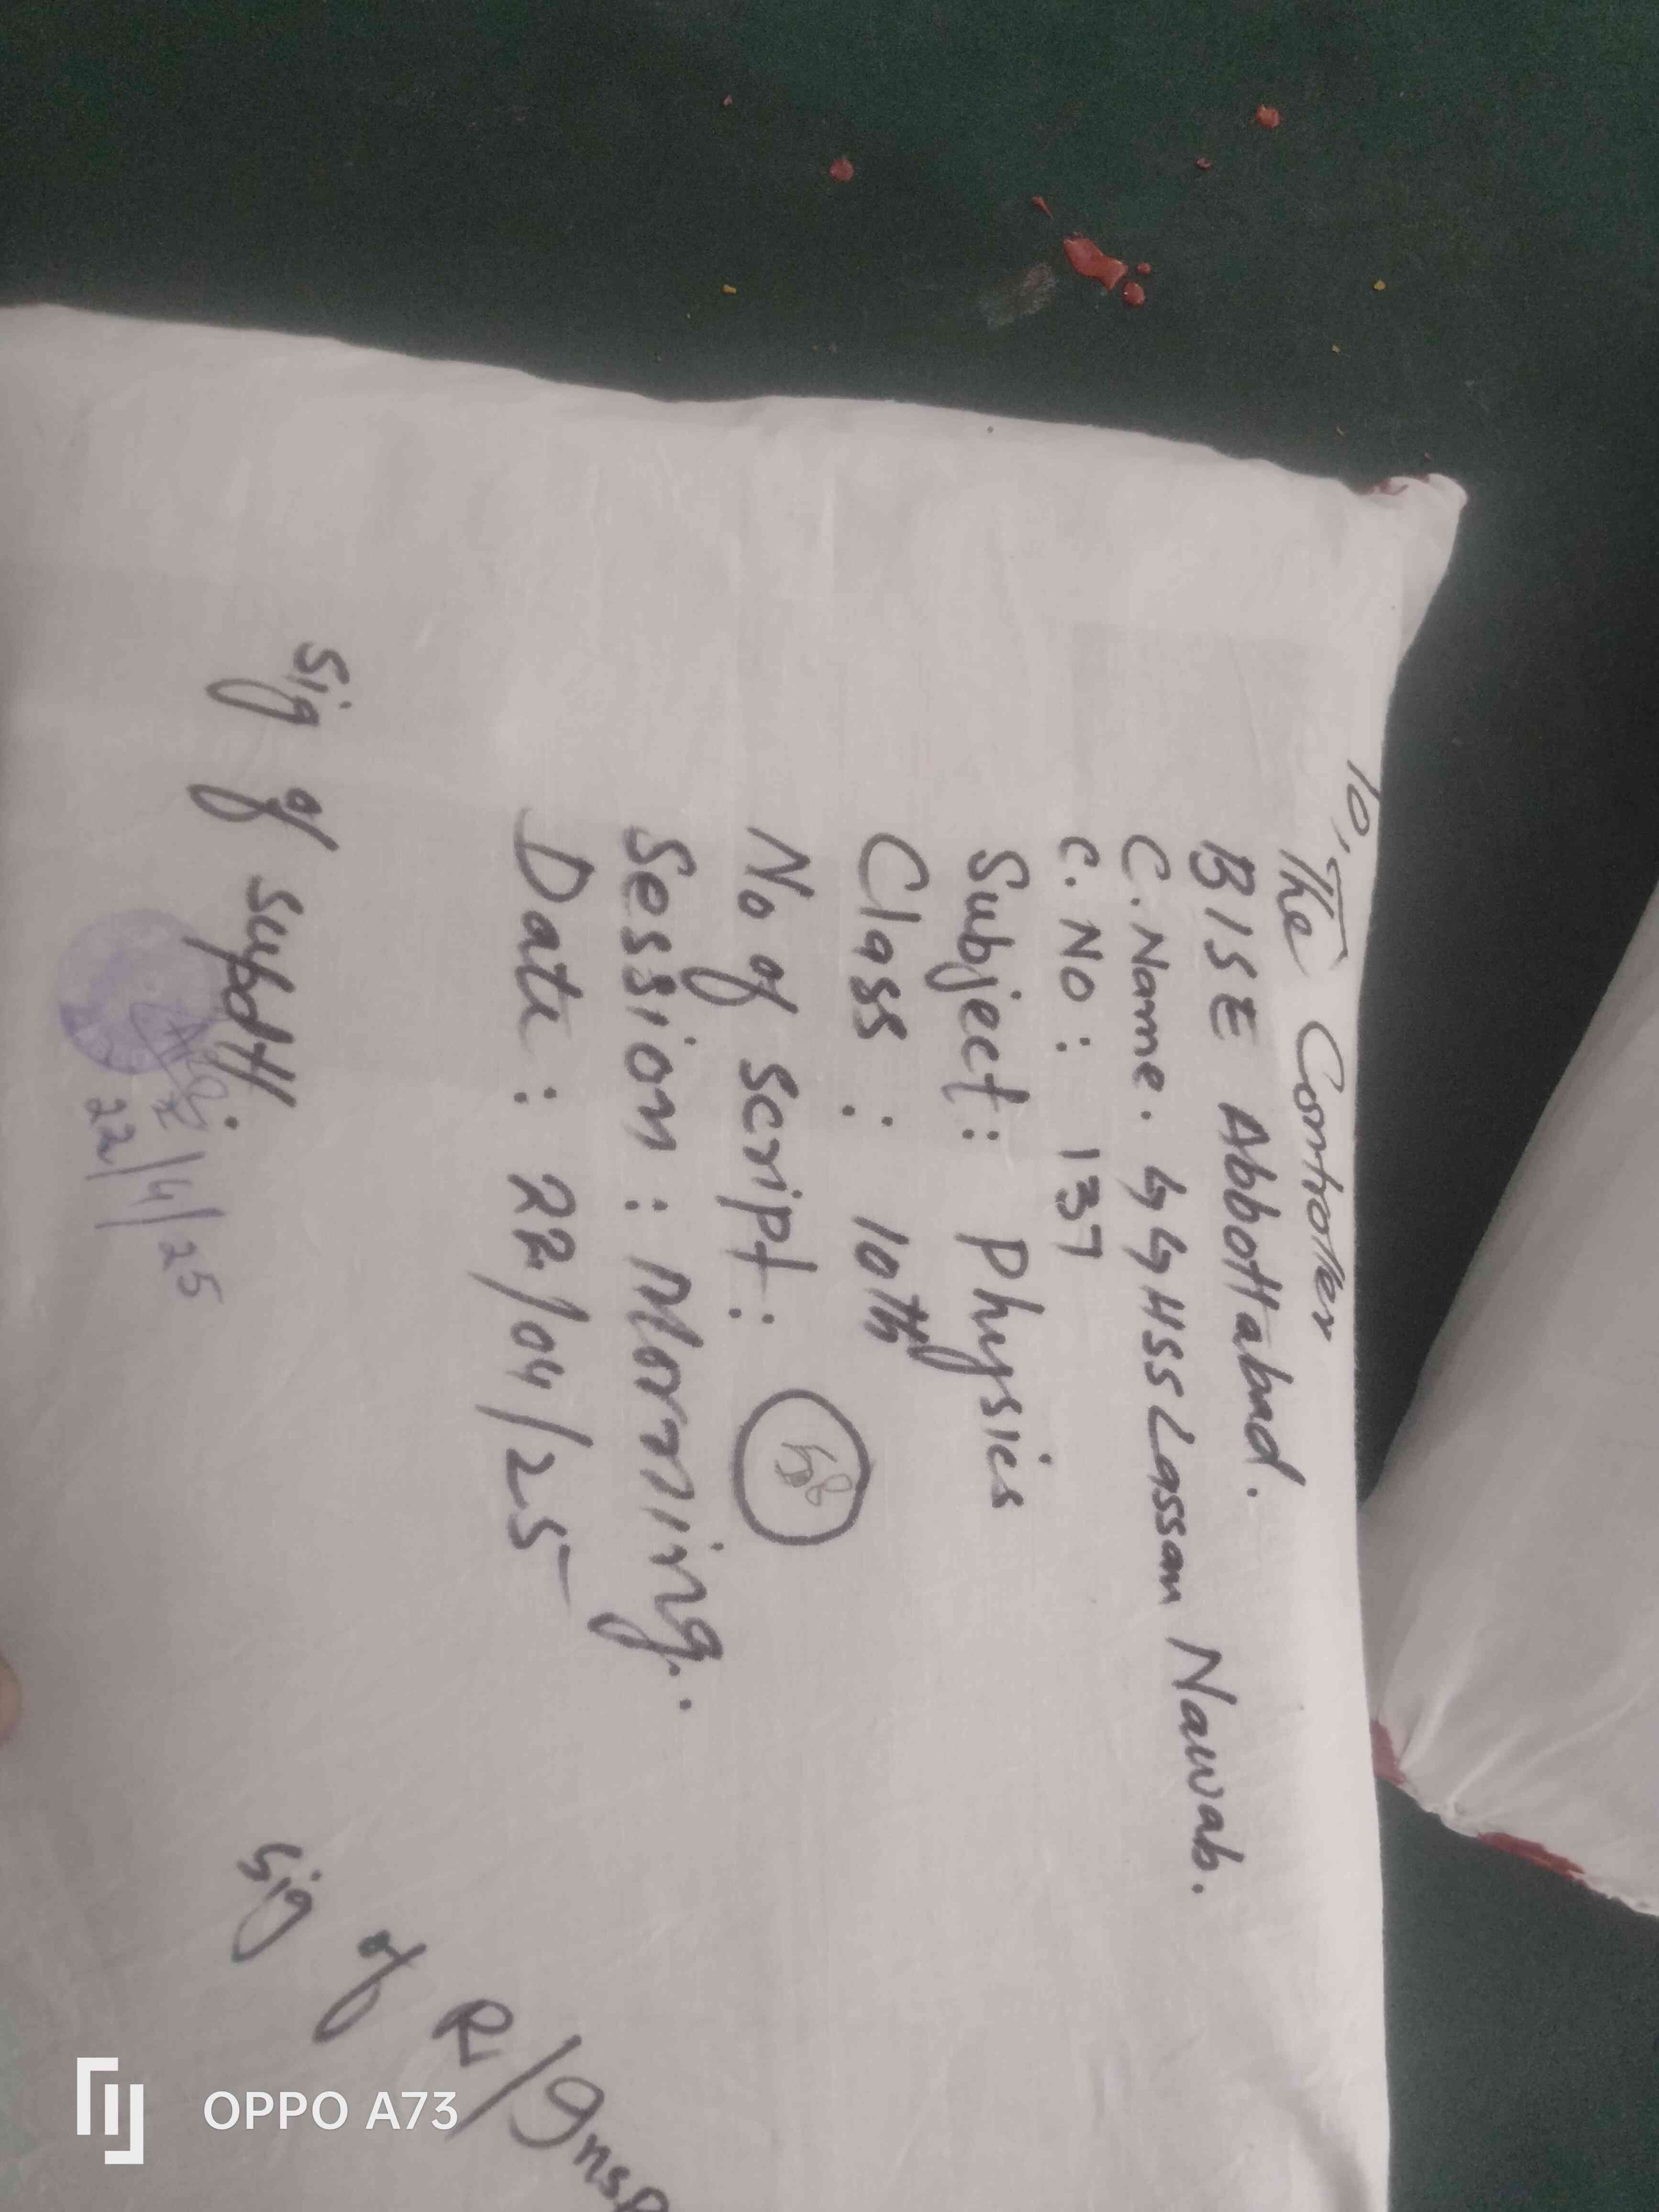 To,
The Controller
BISE Abbottabad.
C.Name. GGHSS Lassan Nawab.
C.NO: 137
Subject: Physics
Class : 10th
No of script:
Session: Morning.
Date: 22/04/25
Sig of supdtt
22/4/25
Sig of RI/Insp
OPPO A73